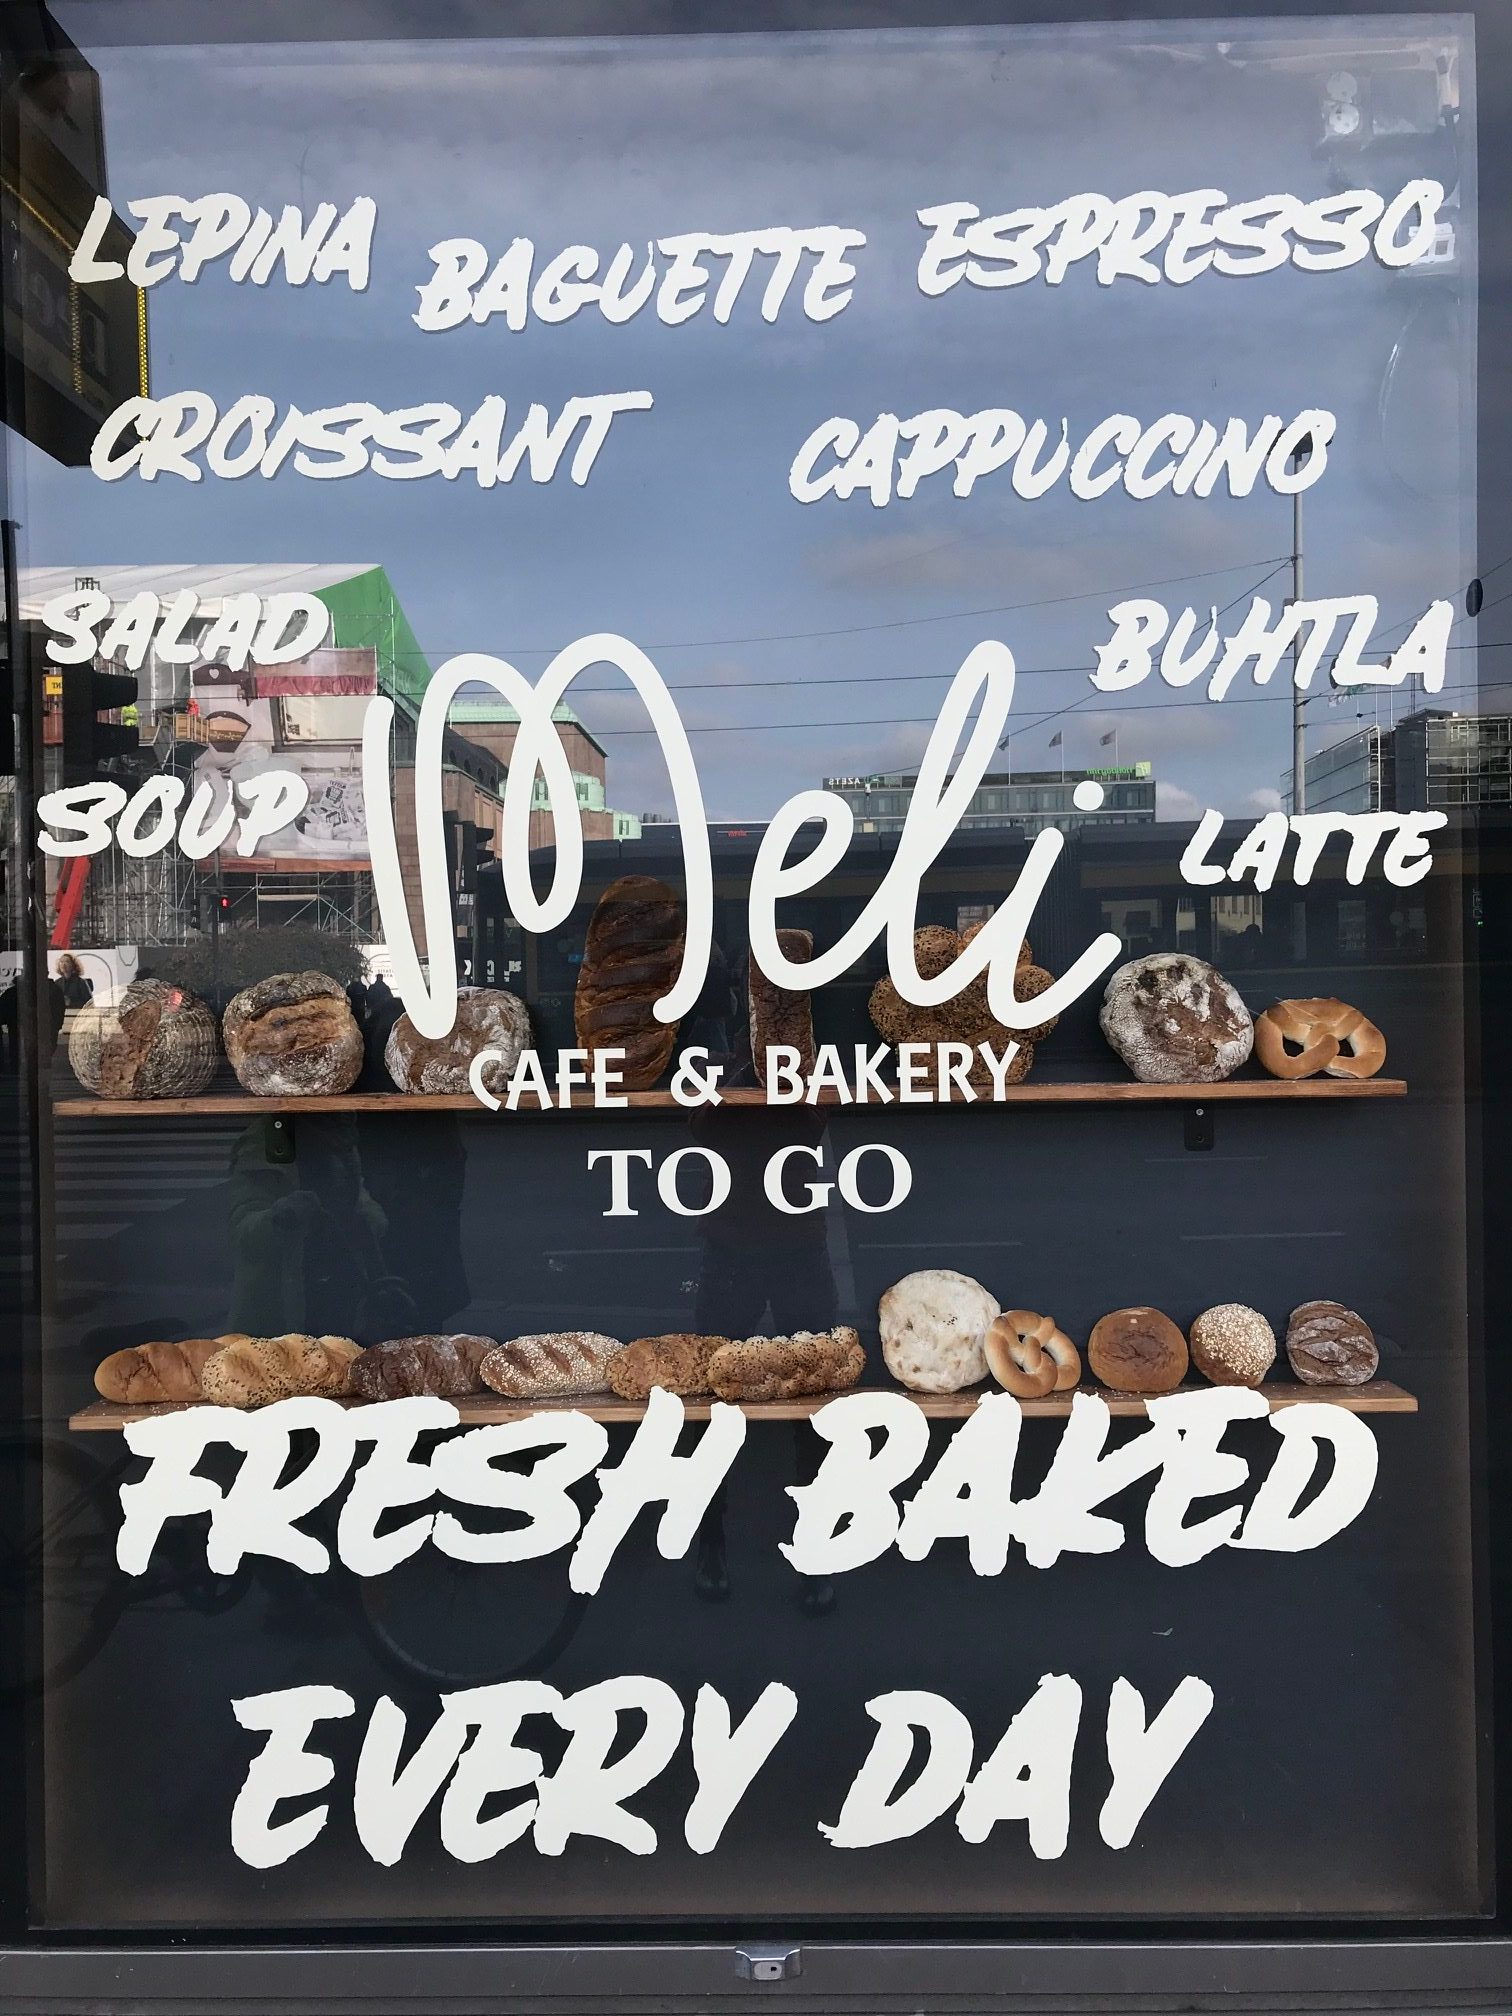 LEPINA BAGUETTE ESPRESSO
CROISSANT CAPPUCCINO
SALAD BUHTLA
SOUP LATTE
Meli
CAFE & BAKERY
TO GO
FRESH BAKED
EVERY DAY
AZETS